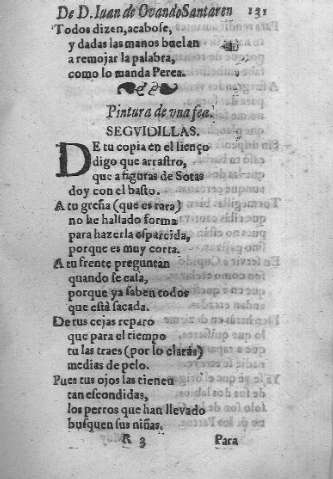 De D. Iuan de Ovando Santaren 131
Todos dizen, acabose,
y dadas las manos buelan
a remojar la palabra,
como lo manda Perea.
Pintura de vna fea.
SEGVIDILLAS.
DE tu copia en el lienço
digo que arrastro,
que a figuras de Sotas
doy con el basto.
A tu greña (que es rara)
no he hallado forma
para hazerla esparcida,
porque es muy corta.
A tu frente preguntan
quando se cala,
porque ya saben todos
que està sacada.
De tus cejas reparo
que para el tiempo
tu las traes (por lo claras)
medias de pelo.
Pues tus ojos las tienen
tan escondidas,
los perros que han llevado
busquen sus niñas.
R 3 Para